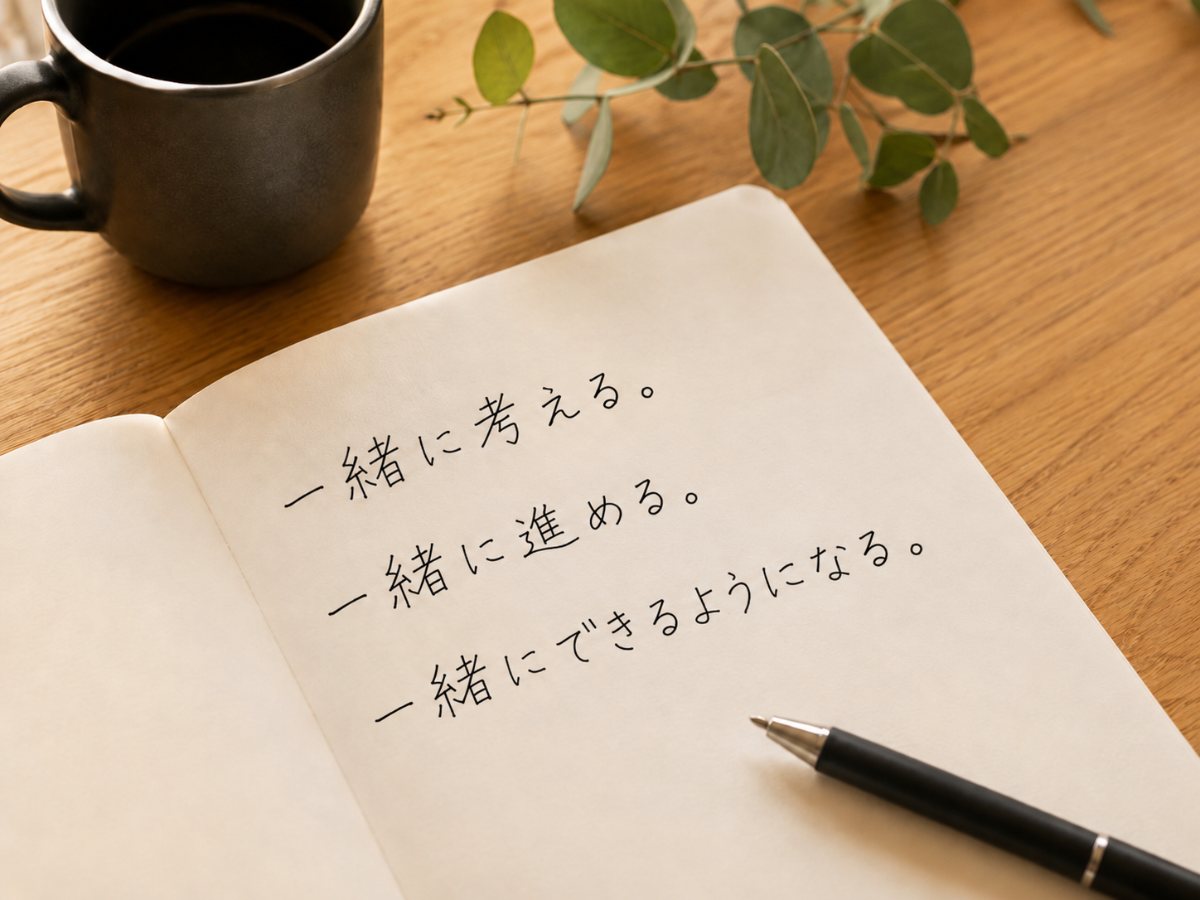 一緒に考える。
一緒に進める。
一緒にできるようになる。